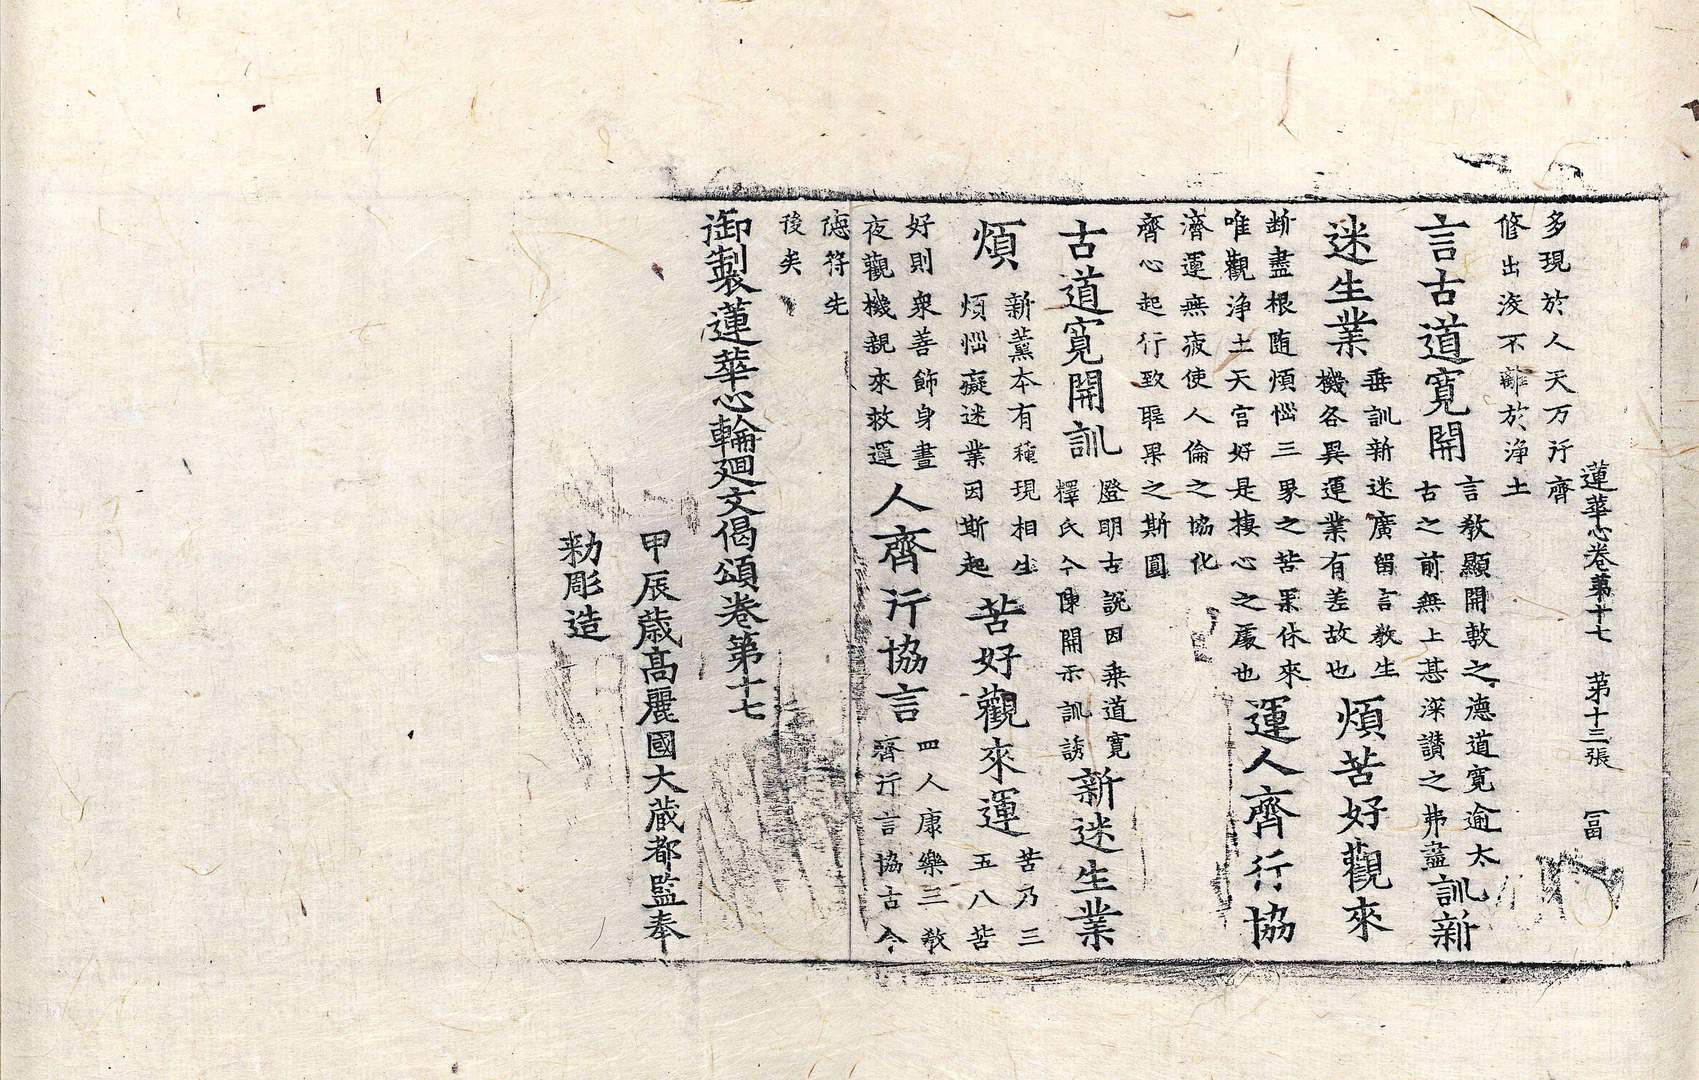 蓮華心卷第十七　第十三張　冨
多現於人天万行齊
修出没不離於淨土
言古道寬開
言教顯開敷之德道寬逾太
古之前無上甚深讃之弗盡
訓新
迷生業
垂訓新迷廣留言教生
機各異運業有差故也
煩苦好觀來
断盡根随煩惱三界之苦果休來
唯觀淨土天宮好是棲心之處也
運人齊行協
濟運無疲使人倫之協化
齊心起行致聖果之斯圓
古道寬開訓
燈明古說因乗道寬
釋氏今陳開示訓誘
新迷生業
煩
新薰本有種現相生
煩惱癡迷業因斯起
苦好觀來運
苦乃三
五八苦
好則衆善飾身晝
夜觀機親來救運
人齊行協言
四人康樂三教
齊行言協古今
德符先
後矣
御製蓮華心輪廻文偈頌卷第十七
甲辰歲高麗國大藏都監奉
勑彫造